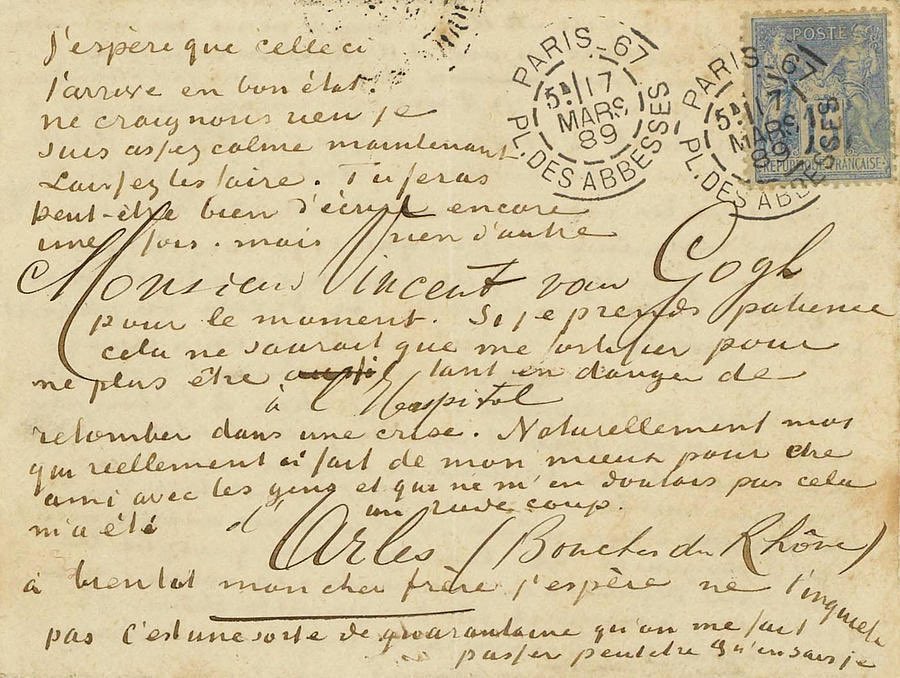 J'espère que celle ci
t'arrive en bon état.
ne craignons rien je
suis assez calme maintenant.
Laissez les faire. Tu feras
peut-être bien d'écrire encore
une fois. mais rien d'autre
Monsieur Vincent van Gogh
pour le moment. Si je prends patience
cela ne saurait que me fortifier pour
ne plus être tant en danger de
à l'Hospital
retomber dans une crise. Naturellement moi
qui reellement ai fait de mon mieux pour être
ami avec les gens et qui ne m'en doutais pas cela
m'a été un rude coup.
d'Arles (Bouches du Rhône)
à bientot mon cher frère j'espère ne t'inquiete
pas c'est une sorte de quarantaine qu'on me fait
passer peutetre qu'en sais je
PARIS_67
5E/17
MARS
89
PL. DES ABBESSES
PARIS_67
5E/17
MARS
89
PL. DES ABBESSES
POSTE
15
REPUBLIQUE FRANÇAISE